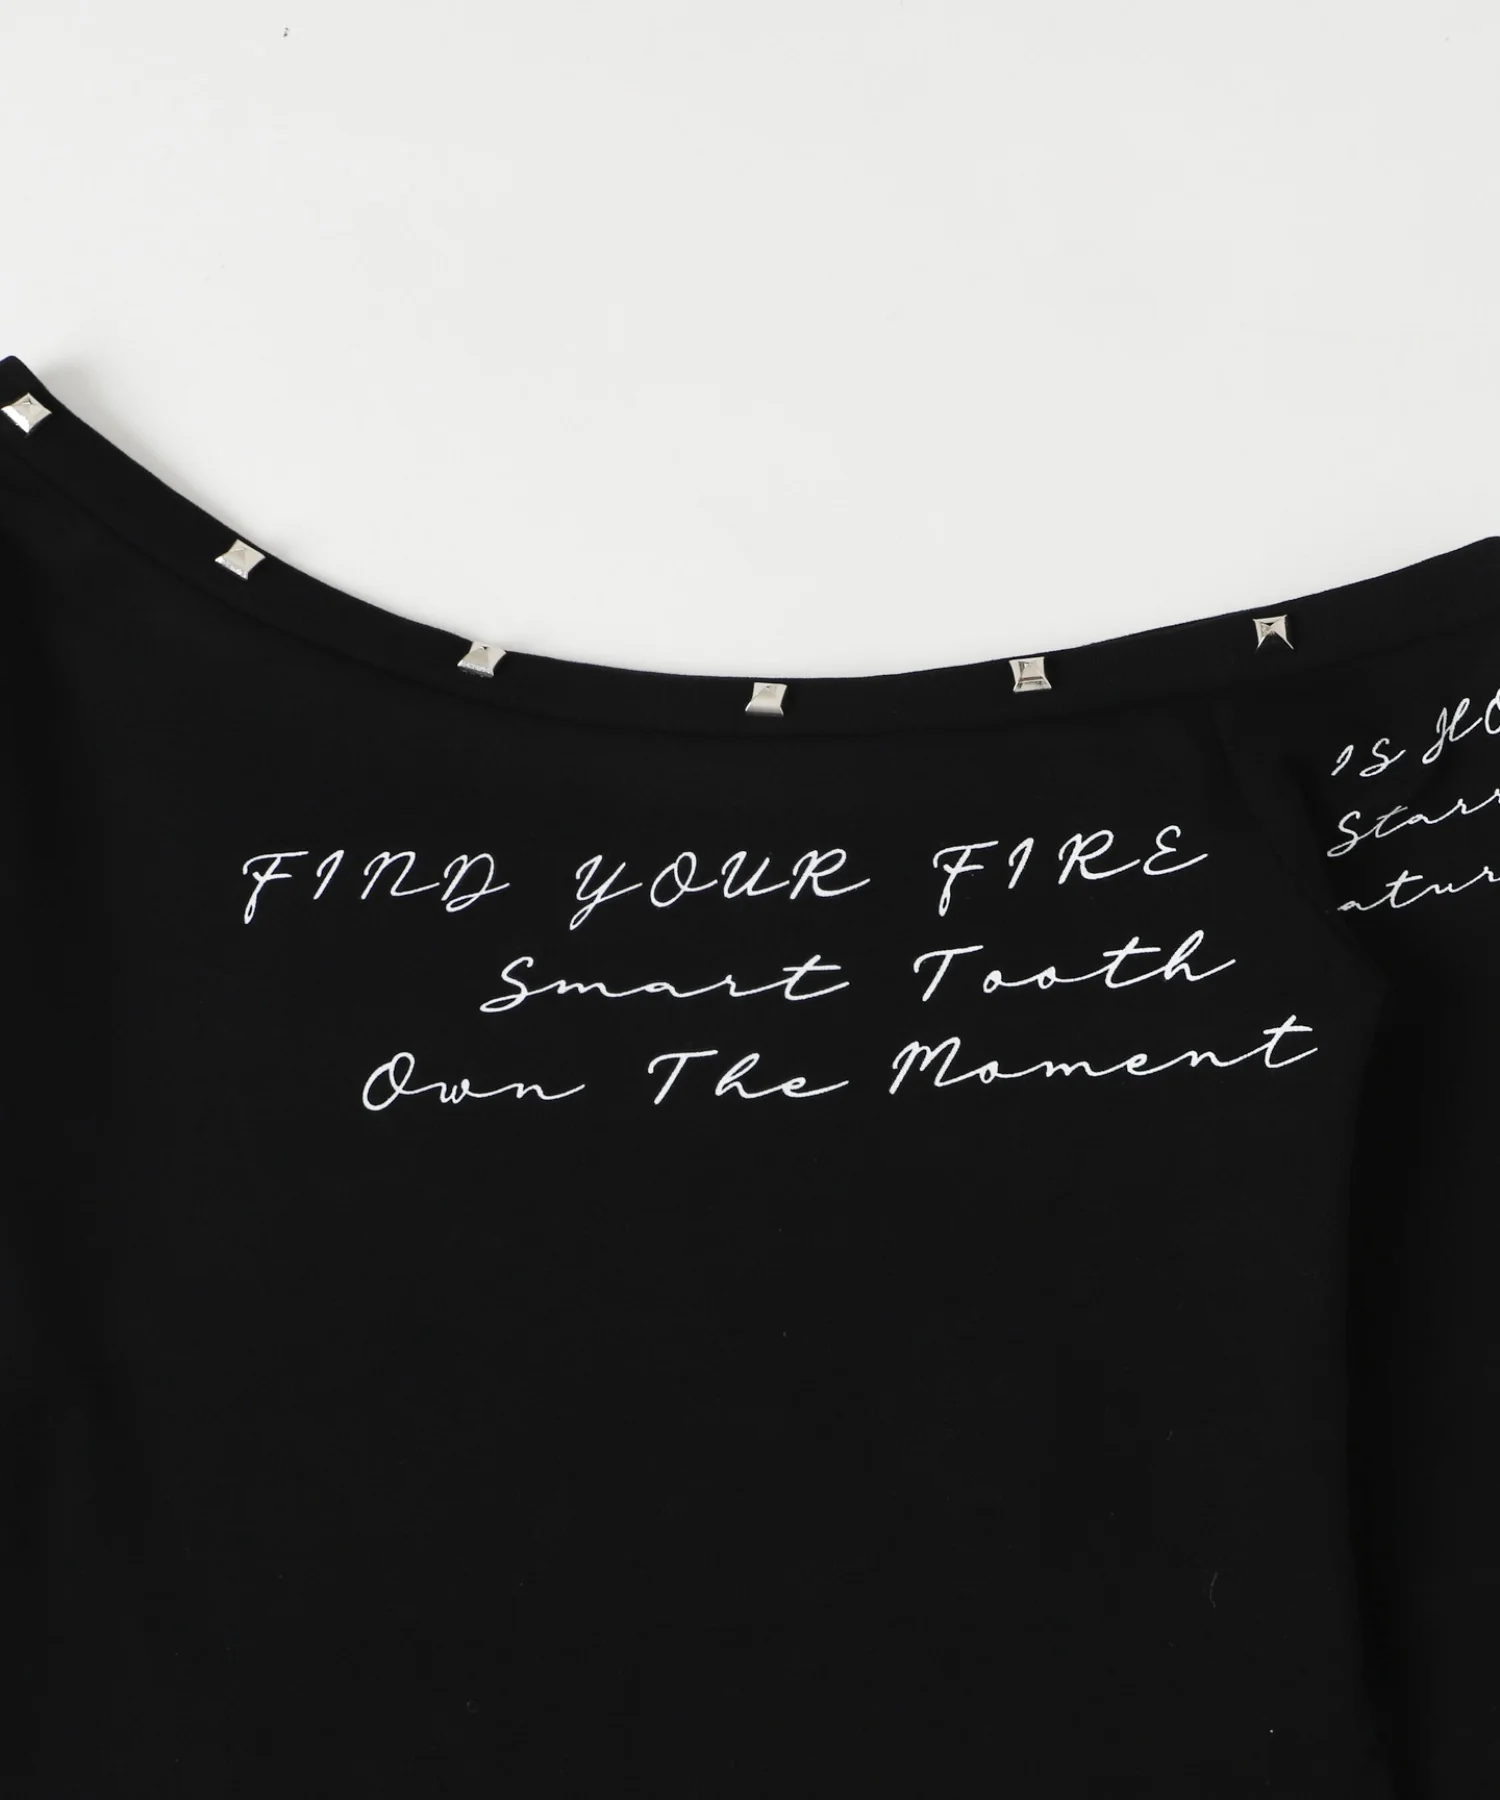 FIND YOUR FIRE
Smart Tooth
Own The Moment
IS